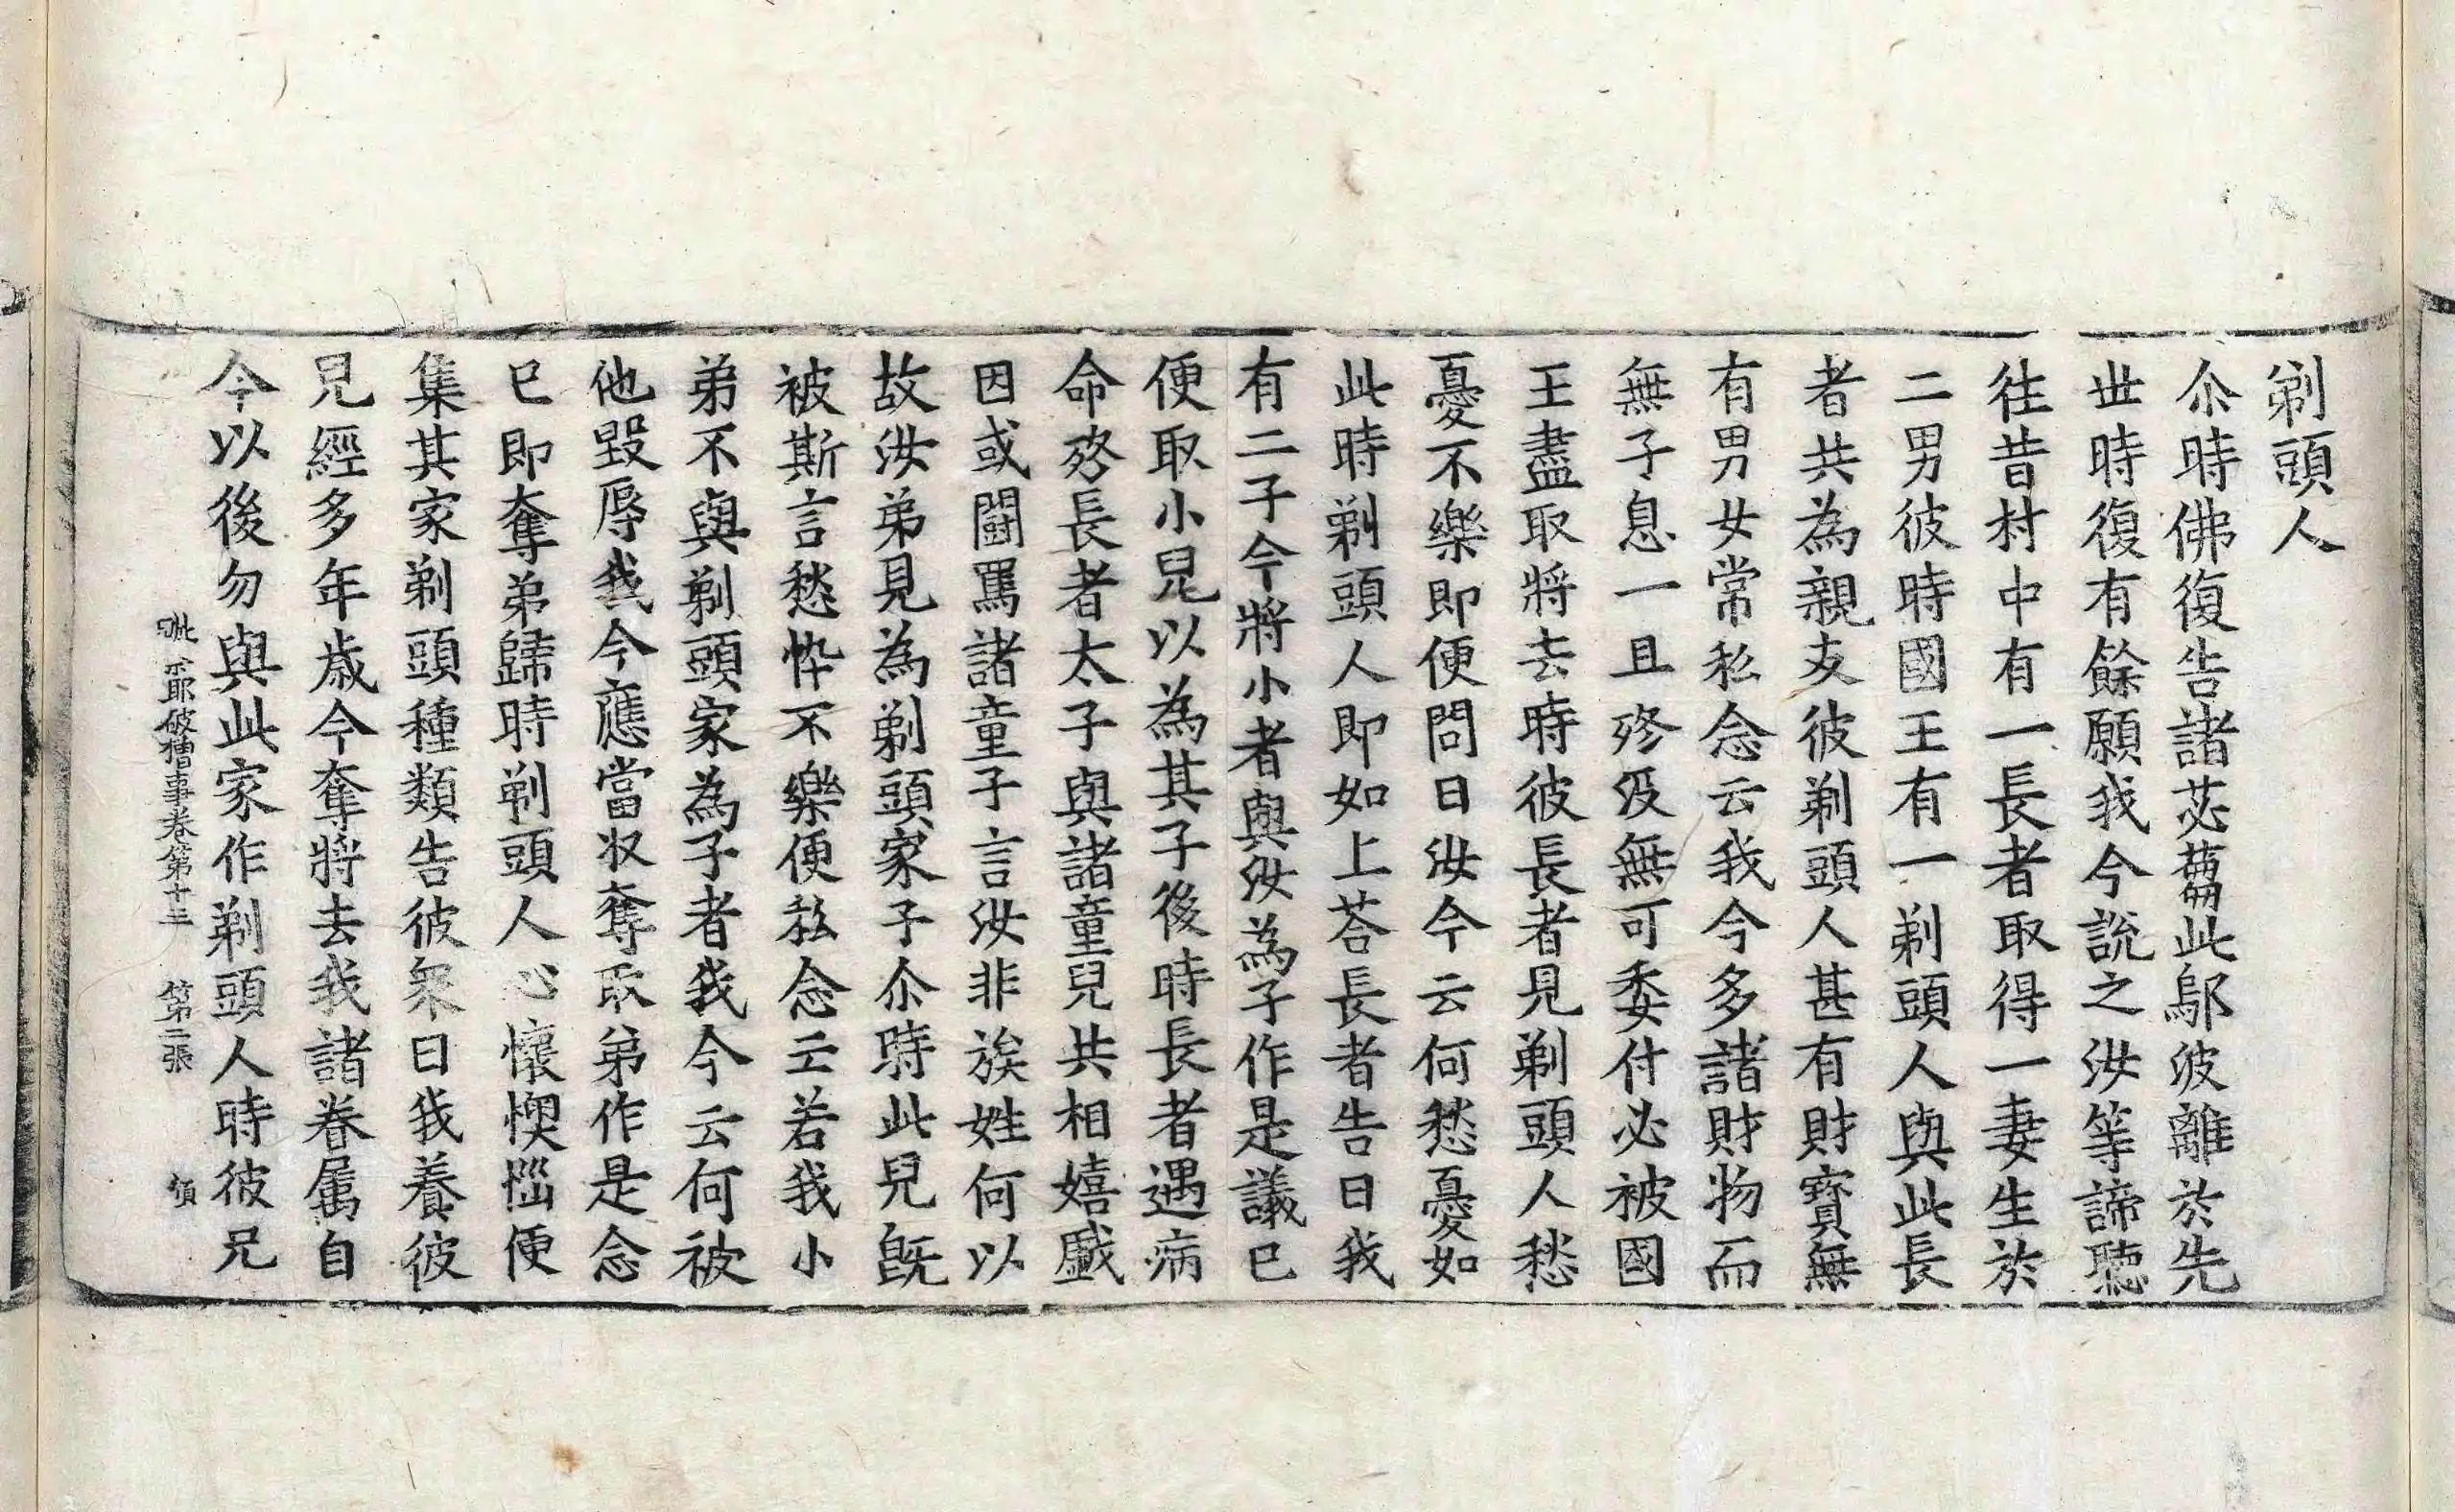 剃頭人
尒時佛復告諸苾蒭此鄔波離於先
丗時復有餘願我今說之汝等諦聽
往昔村中有一長者取得一妻生於
二男彼時國王有一剃頭人與此長
者共為親友彼剃頭人甚有財寶無
有男女常私念云我今多諸財物而
無子息一旦殁歿無可委付必被國
王盡取將去時彼長者見剃頭人愁
憂不樂即便問曰汝今云何愁憂如
此時剃頭人即如上荅長者告曰我
有二子今將小者與汝為子作是議已
便取小兒以為其子後時長者遇病
命終長者太子與諸童兒共相嬉戲
因或鬪罵諸童子言汝非族姓何以
故汝弟見為剃頭家子尒時此兒旣
被斯言愁悴不樂便私念云若我小
弟不與剃頭家為子者我今云何被
他毀辱我今應當収奪取弟作是念
已即奪弟歸時剃頭人心懷懊惱便
集其家剃頭種類告彼衆曰我養彼
兒經多年歲今奪將去我諸眷屬自
今以後勿與此家作剃頭人時彼兄
破僧事卷第十三 第二張